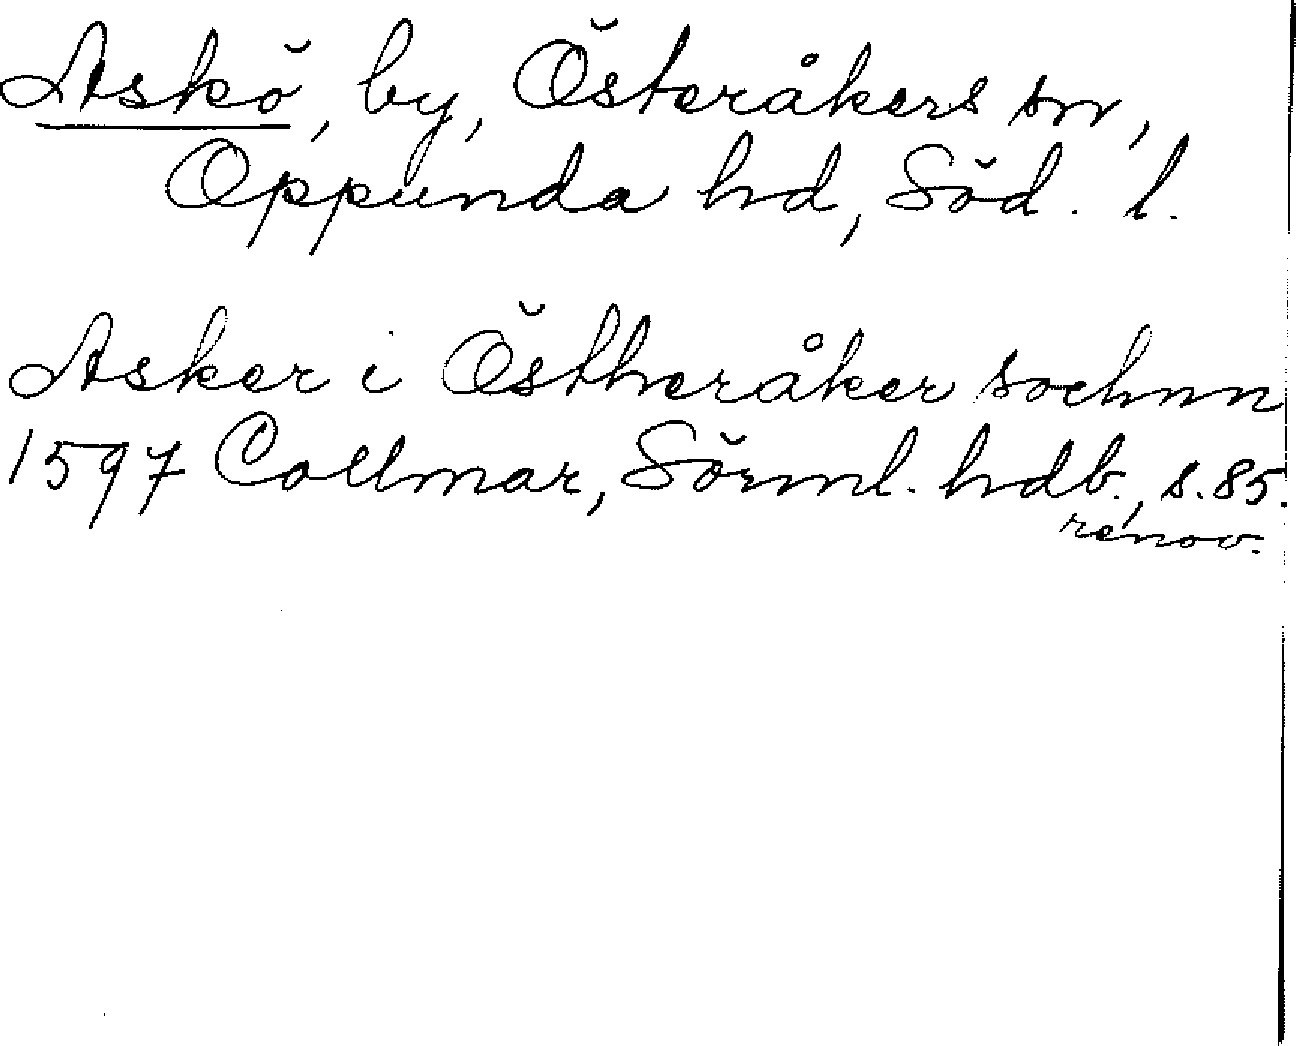 Askö, by, Österåkers sn,
Oppunda hd, Söd. l.
Asker i Östheråker sochnn
1597 Collmar, Sörml. hdb., s. 85.
renov.